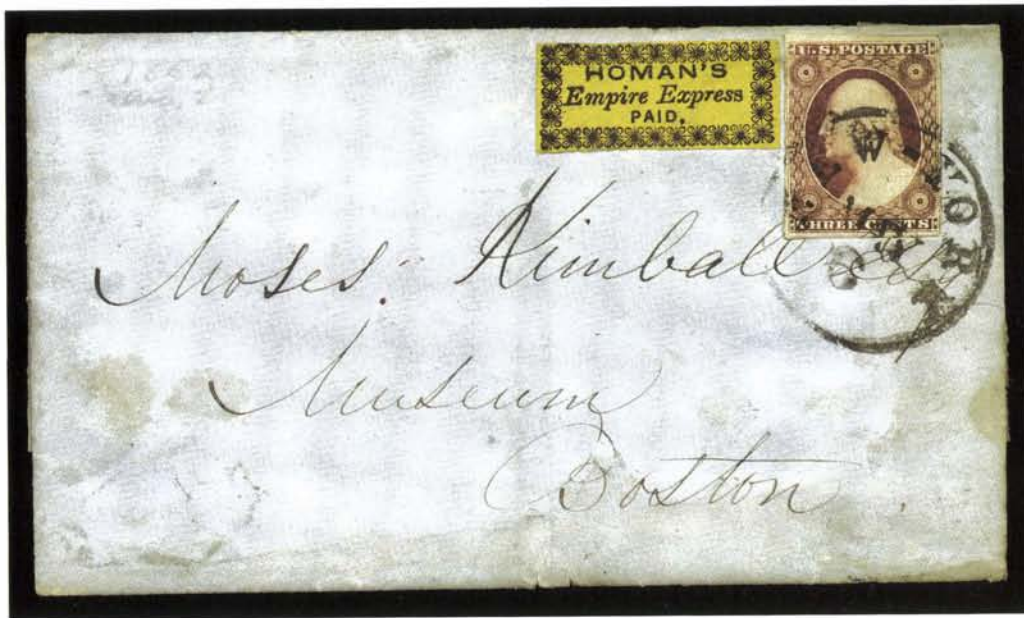 HOMAN'S
Empire Express
PAID.
U.S. POSTAGE
THREE CENTS
YORK
Moses. Kimball Esq
Museum
Boston